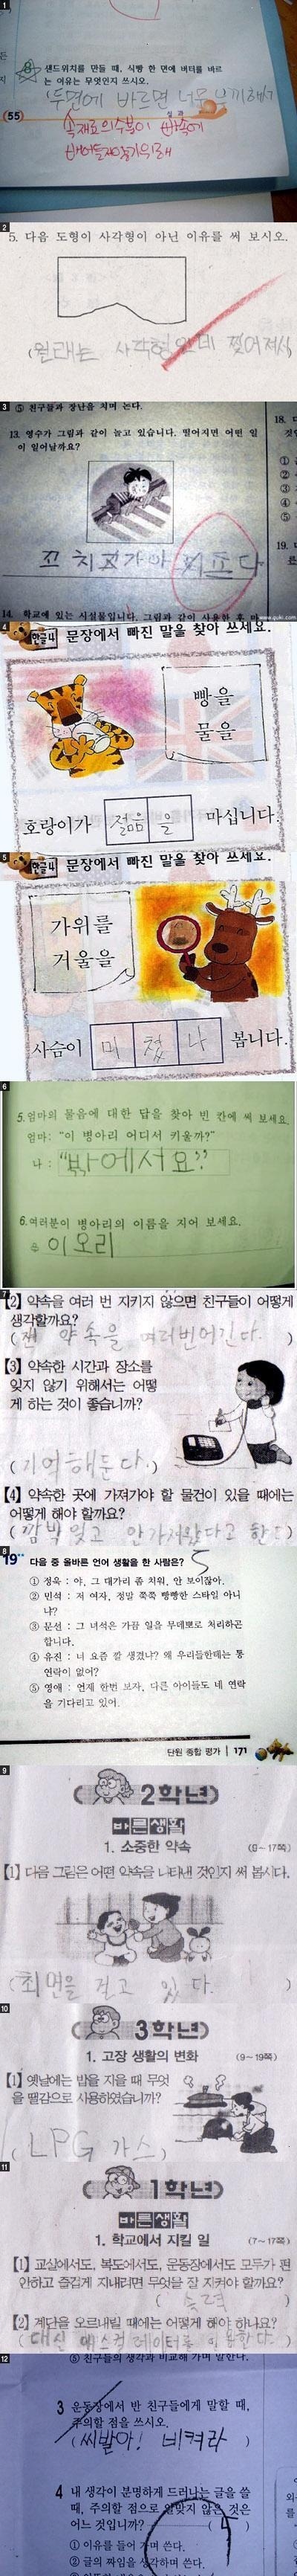 1
8 샌드위치를 만들 때, 식빵 한 면에 버터를 바르
는 이유는 무엇인지 쓰시오.
(두면에 바르면 너무 느끼하기
55
속재료의 수분이 빵속에
배어들지않게위해
2
5. 다음 도형이 사각형이 아닌 이유를 써 보시오.
(원래는 사각형인데 찢어져서)
3
⑤ 친구들과 장난을 치며 논다.
13. 영수가 그림과 같이 놀고 있습니다. 떨어지면 어떤 일
이 일어날까요?
18.
19.
14. 학교에 있는 시설물입니다. 그림과 같이 사용한 후
4
한글4 문장에서 빠진 말을 찾아 쓰세요.
빵을
물을
호랑이가 젊음을 마십니다.
5
한글4 문장에서 빠진 말을 찾아 쓰세요.
가위를
거울을
사슴이 미쳤나 봅니다.
6
5. 엄마의 물음에 대한 답을 찾아 빈 칸에 써 보세요.
엄마: "이 병아리 어디서 키울까?"
나 : "밖에서요"
6. 여러분이 병아리의 이름을 지어 보세요.
이오리
7
【2】 약속을 여러 번 지키지 않으면 친구들이 어떻게
생각할까요?
(쟨 약속을 여러번어긴다. )
【3】 약속한 시간과 장소를
잊지 않기 위해서는 어떻
게 하는 것이 좋습니까?
(기억해둔다.)
【4】 약속한 곳에 가져가야 할 물건이 있을 때에는
어떻게 해야 할까요?
(깜박 잊고 안가져왔다고 한다)
8
19 다음 중 올바른 언어 생활을 한 사람은? 5
① 정욱 : 야, 그 대가리 좀 치워, 안 보이잖아.
② 민석 : 저 여자, 정말 쭉쭉 빵빵한 스타일 아니
냐?
③ 문선 : 그 녀석은 가끔 일을 무데뽀로 처리하곤
합니다.
④ 유진 : 너 요즘 깔 생겼냐? 왜 우리들한테는 통
연락이 없어?
⑤ 영애 : 언제 한번 보자, 다른 아이들도 네 연락
을 기다리고 있어.
단원 종합 평가 171
9
2학년
바른생활
1. 소중한 약속 (9~17쪽)
【1】 다음 그림은 어떤 약속을 나타낸 것인지 써 봅시다.
(최면을 걸고 있다. )
10
3학년
1. 고장 생활의 변화 (9~19쪽)
【1】 옛날에는 밥을 지을 때 무엇
을 땔감으로 사용하였습니까?
(LPG 가스)
11
1학년
바른생활
1. 학교에서 지킬 일 (7~17쪽)
【1】 교실에서도, 복도에서도, 운동장에서도 모두가 편
안하고 즐겁게 지내려면 무엇을 잘 지켜야 할까요?
【2】 계단을 오르내릴 때에는 어떻게 해야 하나요?
(대신 에스컬레이터를 이용한다.)
12
⑤ 친구들의 생각과 비교해 가며 말한다.
3 운동장에서 반 친구들에게 말할 때,
주의할 점을 쓰시오.
(씨발아! 비켜라 )
4 내 생각이 분명하게 드러나는 글을 쓸
때, 주의할 점으로 알맞지 않은 것은
어느 것입니까? ( 4 )
① 이유를 들어 가며 쓴다.
② 글의 짜임을 생각하며 쓴다.